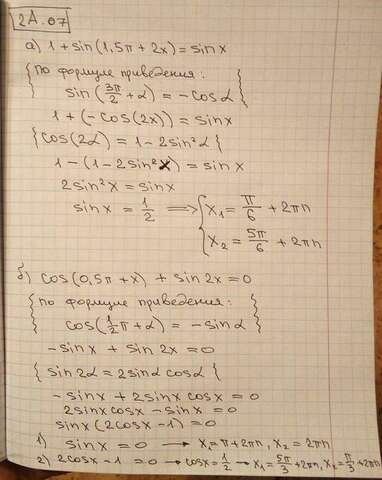 2А.07
а) 1 + sin(1,5π + 2x) = sin x
{по формуле приведения:
sin(3π/2 + α) = -cos α}
1 + (-cos(2x)) = sin x
{cos(2α) = 1 - 2sin²α}
1 - (1 - 2sin²x) = sin x
2sin²x = sin x
sin x = 1/2 ⟹ { x₁ = π/6 + 2πn
x₂ = 5π/6 + 2πn
б) cos(0,5π + x) + sin 2x = 0
{по формуле приведения:
cos(1/2 π + α) = -sin α}
-sin x + sin 2x = 0
{sin 2α = 2sin α cos α}
-sin x + 2sin x cos x = 0
2sin x cos x - sin x = 0
sin x (2cos x - 1) = 0
1) sin x = 0 → x₁ = π + 2πn, x₂ = 2πn
2) 2cos x - 1 = 0 → cos x = 1/2 → x₁ = 5π/3 + 2πn, x₂ = π/3 + 2πn